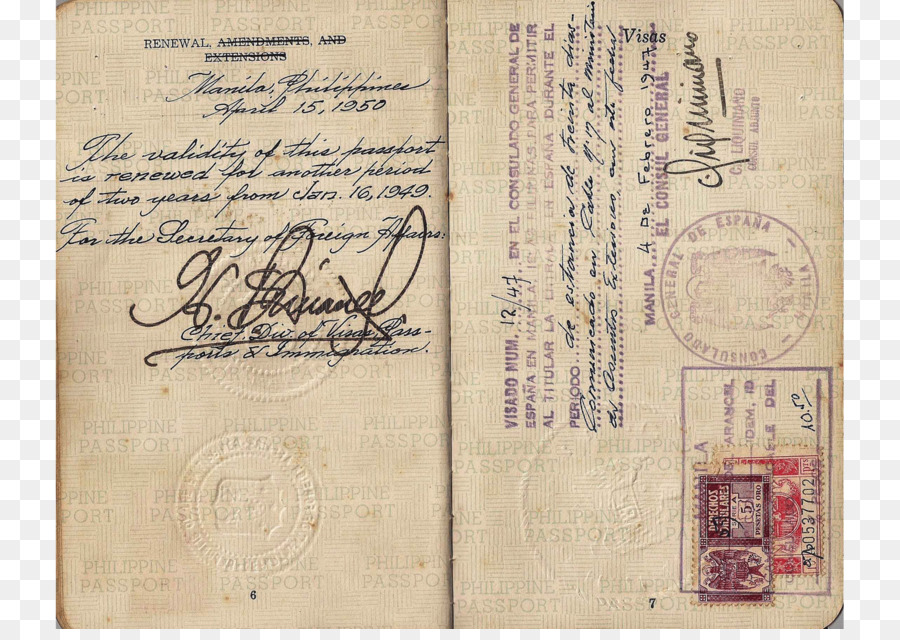 RENEWAL, AMENDMENTS, AND
EXTENSIONS
Manila, Philippines
April 15, 1950
The validity of this passport
is renewed for another period
of two years from Jan. 16, 1949.
For the Secretary of Foreign Affairs:
Chief, Div. of Visas, Pass-
ports & Immigration.
6
Visas
VISADO NUM. 12/47. EN EL CONSULADO GENERAL DE
ESPAÑA EN MANILA, ISLAS FILIPINAS, PARA PERMITIR
AL TITULAR LA ENTRADA EN ESPAÑA DURANTE EL
PERIODO de estancia de treinta dias.-
Comunicado en Cable nº 17 al Ministerio
de Asuntos Exteriores en esta fecha
MANILA 4 DE Febrero 1947
EL CONSUL GENERAL
CONSUL ADJUNTO
CONSULADO GENERAL DE ESPAÑA - MANILA -
10.50
DERECHOS
CONSULARES
5
PESETAS ORO
PTS
0537702
7
PHILIPPINE
PASSPORT